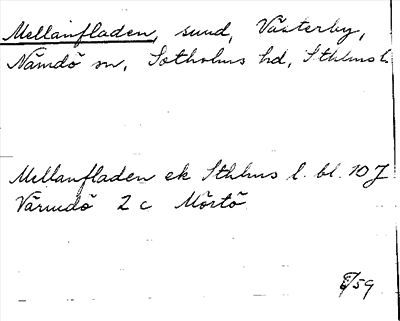 Mellanfladen, sund, Västerby,
Nämdö sn, Sotholms hd, Sthlms l.
Mellanfladen ek Sthlms l. bl. 10 J
Värmdö 2 c Mörtö
/59